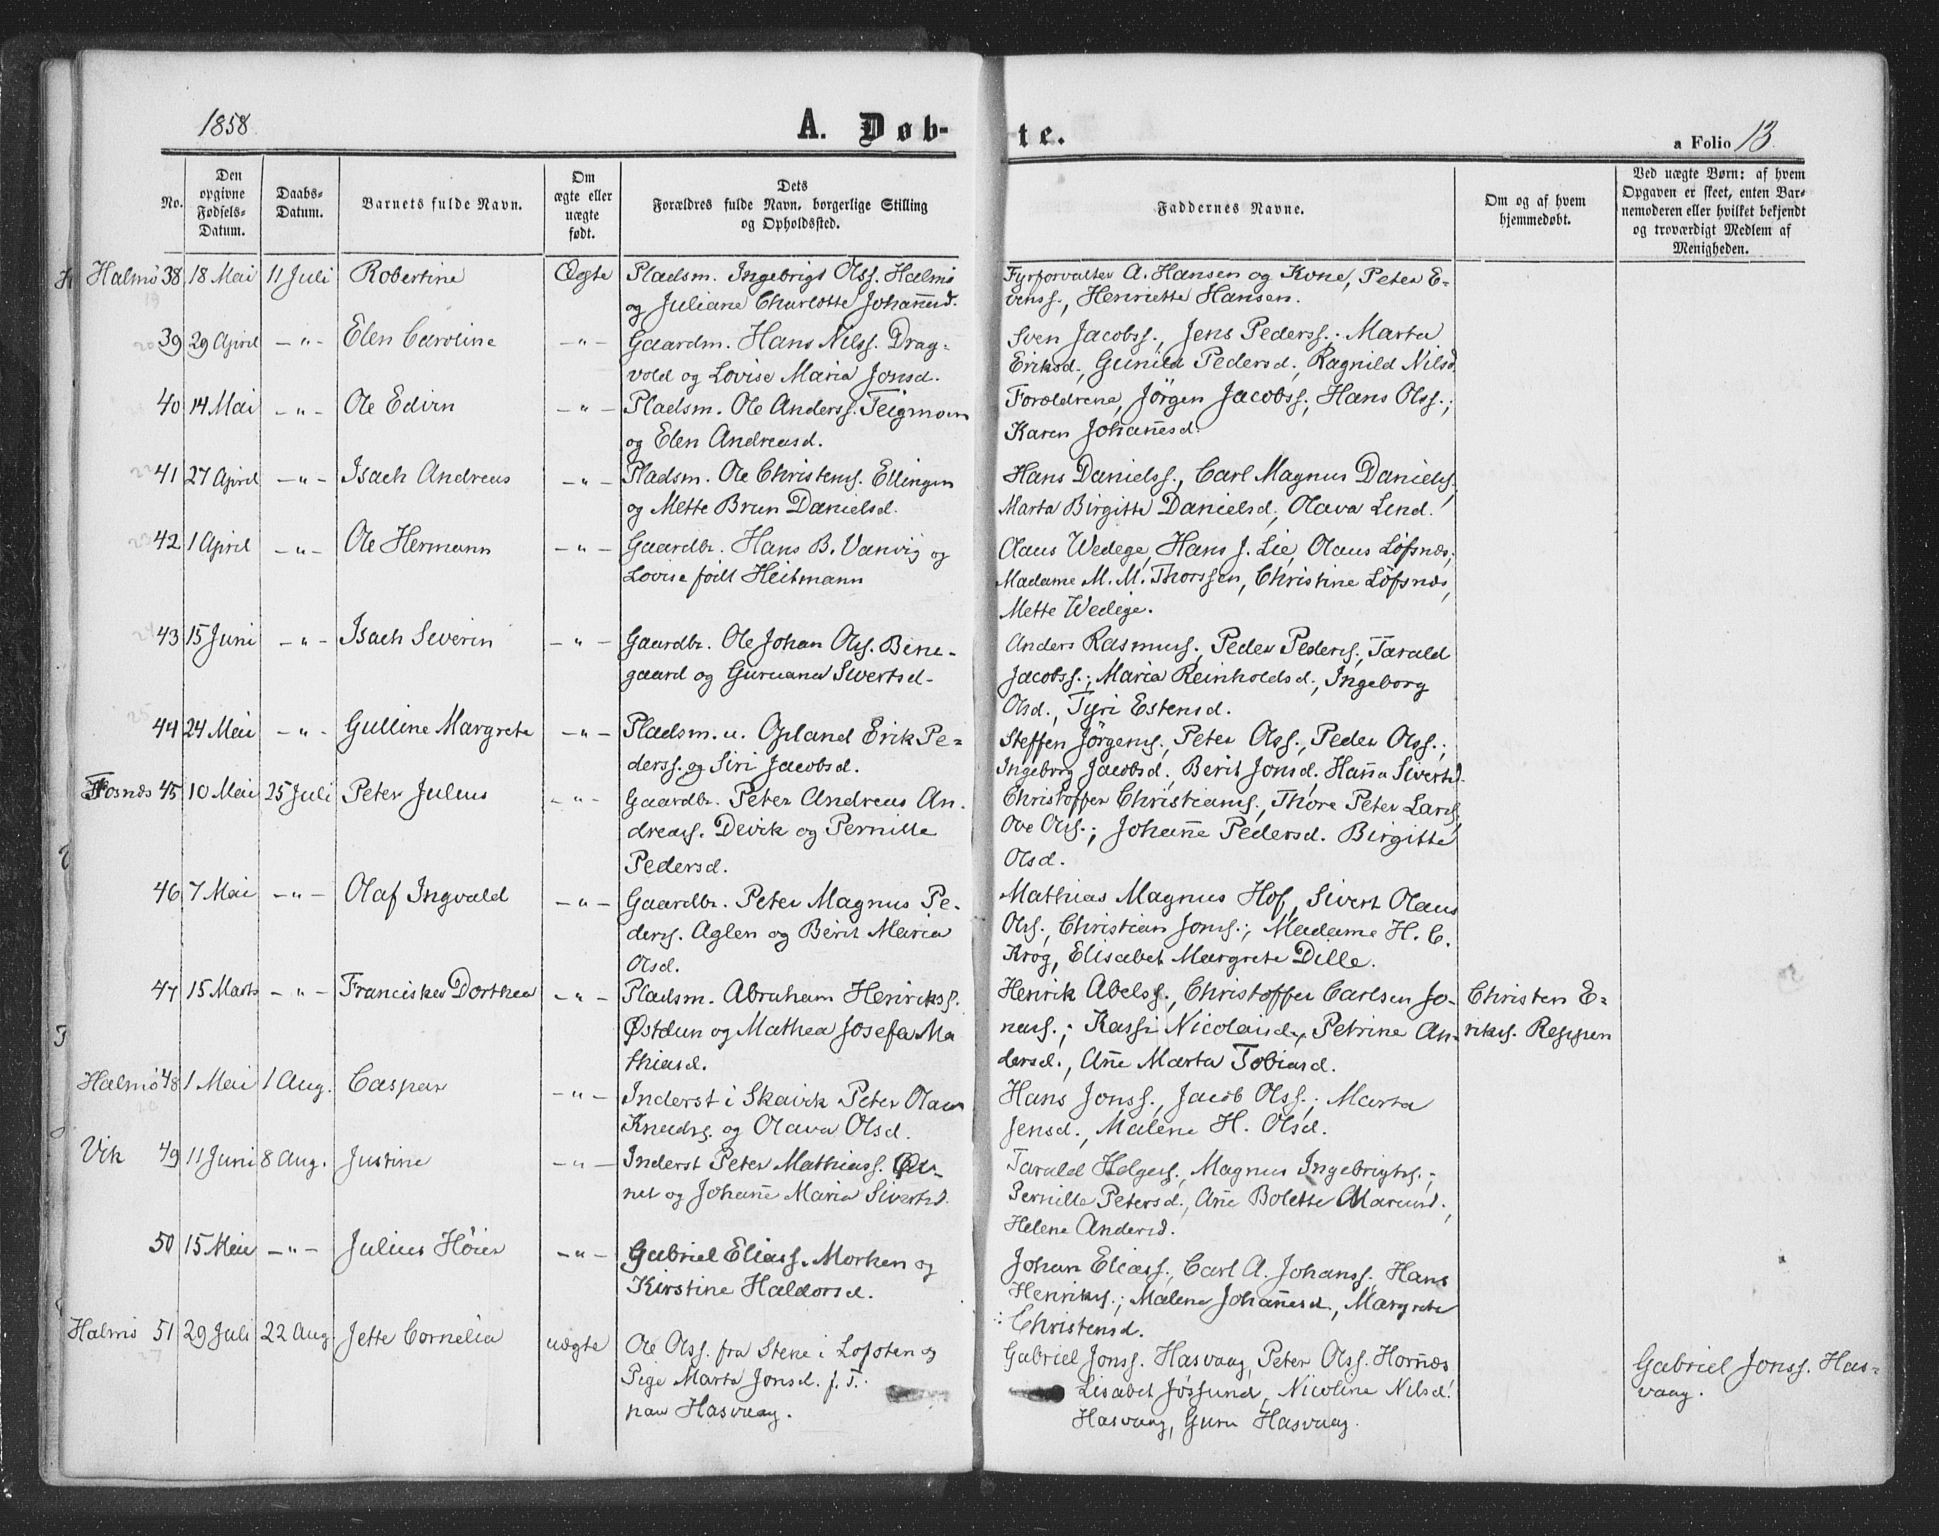 1858
A. Døb-
te.
a Folio 13.
No.
Den
opgivne
Fødsels-
Datum.
Daabs-
Datum.
Barnets fulde Navn.
Om
ægte eller
uægte
født.
Dets
Forældres fulde Navn, borgerlige Stilling
og Opholdssted.
Faddernes Navne.
Om og af hvem
hjemmedøbt.
Ved uægte Børn: af hvem
Opgaven er skeet, enten Bar-
nemoderen eller hvilket bekjendt
og troværdigt Medlem af
Menigheden.
Halmö 38 18 Mai 11 Juli Robertine Ægte Pladsm. Ingebrigt Olss. Halmö
og Juliane Charlotte Johannesd.
Fyrforvalter A. Hansen og Kone, Peter E-
venss., Henriette Hansen.
39 29 April -"- Elen Caroline -"- Gaardm. Hans Nilss. Drag-
vold og Lovise Maria Jonsd.
Sven Jacobss., Jens Pederss.; Marta
Eriksd., Gunild Pedersd., Ragnild Nilsd.
40 14 Mai -"- Ole Edvin -"- Pladsm. Ole Anderss. Teigmoen
og Elen Andreasd.
Forældrene, Jörgen Jacobss., Hans Olss.;
Karen Johannesd.
41 27 April -"- Isach Andreas -"- Pladsm. Ole Christens. Ellingen
og Mette Brun Danielsd.
Hans Danielss., Carl Magnus Daniels.,
Marta Birgitte Danielsd., Olava Lind.
42 1 April -"- Ole Hermann -"- Gaardbr. Hans B. Vanvig og
Lovise födt Heitmann
Olaus Wedege, Hans J. Lie, Olaus Löfsnæs;
Madame M. M. Thorssen, Christine Löfsnæs,
Mette Wedege.
43 15 Juni -"- Isach Severin -"- Gaardbr. Ole Johan Ols. Bene-
gaard og Guruana Sivertsd.
Anders Rasmus., Peder Peders., Tarald
Jacobss.; Maria Reinholdsd., Ingeborg
Olsd., Tyri Estensd.
44 24 Mai -"- Gulline Margrete -"- Pladsm. u. Opland Erik Pe-
derss. og Siri Jacobsd.
Steffen Jörgens., Peter Olss., Peder Olss.;
Ingeborg Jacobsd., Berit Jonsd. Hanna Sivertsd.
Fosnæs 45 10 Mai 25 Juli Peter Julius -"- Gaardbr. Peter Andreas An-
dreass. Devik og Pernille
Pedersd.
Christoffer Christians., Thore Peter Lars.,
Ove Ols.; Johanne Pedersd. Birgitte
Olsd.
46 7 Mai -"- Olaf Ingvald -"- Gaardbr. Peter Magnus Pe-
ders. Aglen og Berit Maria
Olsd.
Mathias Magnus Hof, Sivert Olaus
Ols., Christian Jons.; Madame H. C.
Krog, Elisabet Margrete Dille.
47 15 Marts -"- Franciska Dorthea -"- Pladsm. Abraham Henrikss.
Østdun og Mathea Josefa Ma
thiasd.
Henrik Abelss., Christoffer Carlsen Jo-
nass.; Kassi Nicolaisd., Petrine An-
dersd., Ane Marta Tobiasd.
Christen E-
riks. Reppen
Halmö 48 1 Mai 1 Aug. Caspar -"- Inderst i Skavik Peter Olaus
Knuds. og Olava Olsd.
Hans Jonss., Jacob Olss.; Marta
Jensd., Malene H. Olsd.
Vik 49 11 Juni 8 Aug. Justine -"- Inderst Peter Mathiass.
og Johanne Maria Sivertsd.
Tarald Helges., Magnus Ingebrigts.;
Pernille Petersd., Ane Bolette Marcusd.,
Helene Andersd.
50 15 Mai -"- Julius Höier -"- Gabriel Eliass. Morken og
Kirstine Haldorsd.
Johan Eliass., Carl A. Johanss., Hans
Henriks.; Malene Johannesd., Margrete
Christensd.
Halmö 51 29 Juli 22 Aug. Jette Cornelia uægte Ole Olss. fra Stene i Lofoten og
Pige Marta Jonsd. f. T.
paa Hasvaag.
Gabriel Jonss. Hasvaag, Peter Olss. Hornæs
Lisabet Jössund, Nicoline Nilsd.
Hasvaag, Guru Hasvaag.
Gabriel Jonss. Has-
vaag.